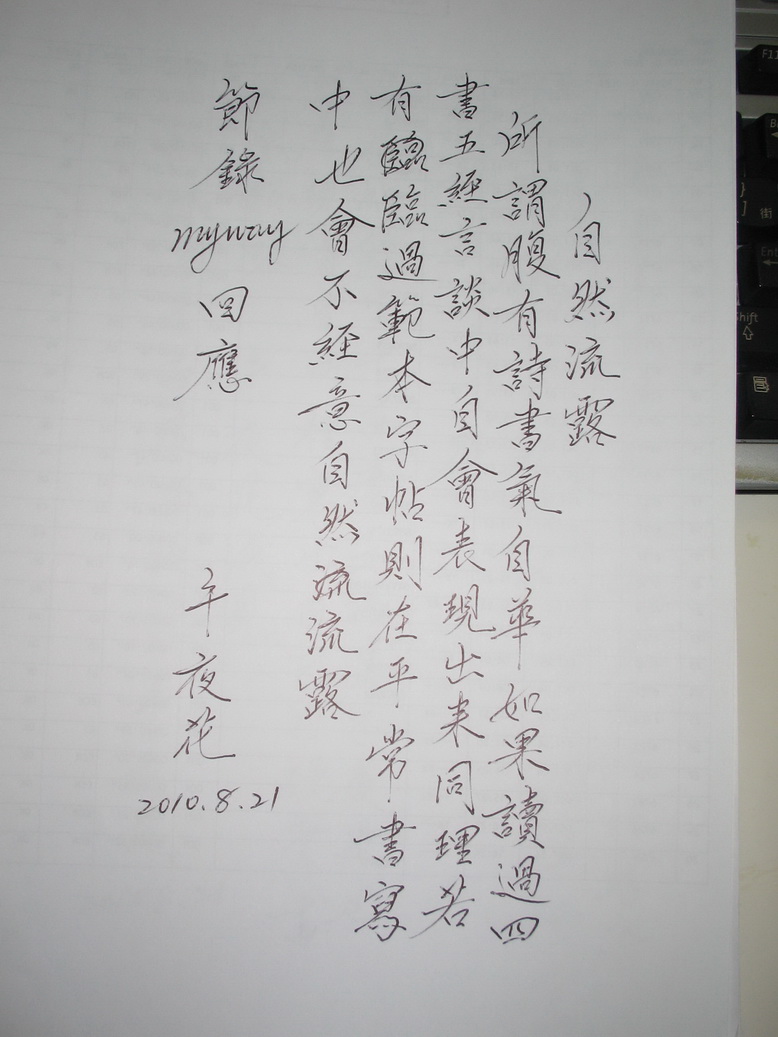 自然流露
所謂腹有詩書氣自華如果讀過四
書五經言談中自會表現出来同理若
有臨臨過範本字帖則在平常書寫
中也會不経意自然流流露
節錄myway回應
午夜花
2010.8.21
F11
Ent
Shift